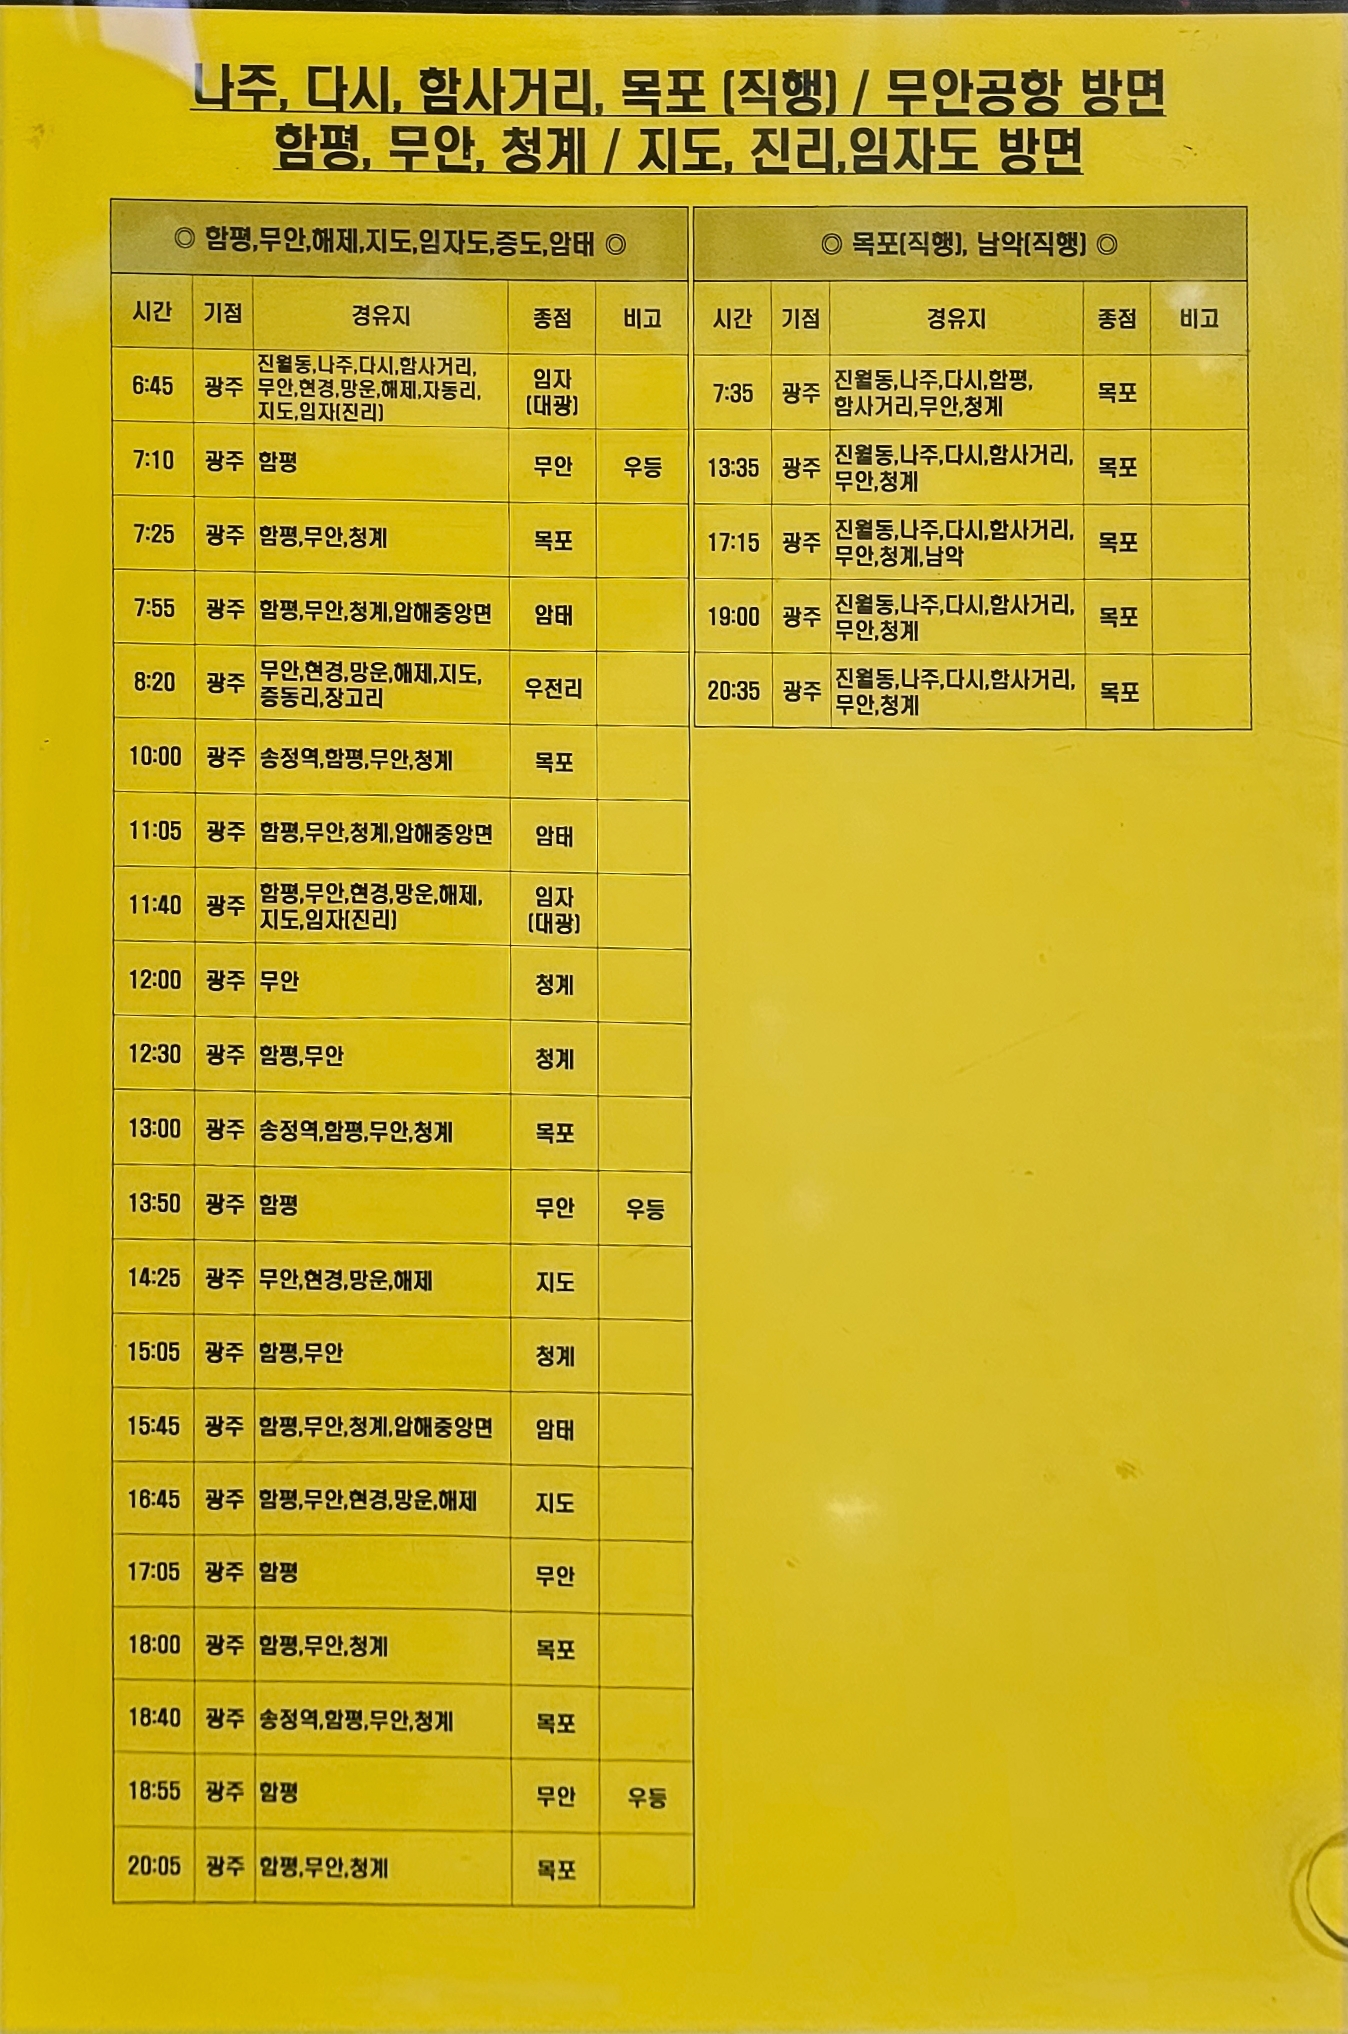 나주, 다시, 함사거리, 목포 (직행) / 무안공항 방면
함평, 무안, 청계 / 지도, 진리,임자도 방면
◎ 함평,무안,해제,지도,임자도,증도,암태 ◎
시간 기점 경유지 종점 비고
6:45 광주 진월동,나주,다시,함사거리, 무안,현경,망운,해제,자동리, 지도,임자(진리) 임자 (대광)
7:10 광주 함평 무안 우등
7:25 광주 함평,무안,청계 목포
7:55 광주 함평,무안,청계,압해중앙면 암태
8:20 광주 무안,현경,망운,해제,지도, 증동리,장고리 우전리
10:00 광주 송정역,함평,무안,청계 목포
11:05 광주 함평,무안,청계,압해중앙면 암태
11:40 광주 함평,무안,현경,망운,해제, 지도,임자(진리) 임자 (대광)
12:00 광주 무안 청계
12:30 광주 함평,무안 청계
13:00 광주 송정역,함평,무안,청계 목포
13:50 광주 함평 무안 우등
14:25 광주 무안,현경,망운,해제 지도
15:05 광주 함평,무안 청계
15:45 광주 함평,무안,청계,압해중앙면 암태
16:45 광주 함평,무안,현경,망운,해제 지도
17:05 광주 함평 무안
18:00 광주 함평,무안,청계 목포
18:40 광주 송정역,함평,무안,청계 목포
18:55 광주 함평 무안 우등
20:05 광주 함평,무안,청계 목포
◎ 목포(직행), 남악(직행) ◎
시간 기점 경유지 종점 비고
7:35 광주 진월동,나주,다시,함평, 함사거리,무안,청계 목포
13:35 광주 진월동,나주,다시,함사거리, 무안,청계 목포
17:15 광주 진월동,나주,다시,함사거리, 무안,청계,남악 목포
19:00 광주 진월동,나주,다시,함사거리, 무안,청계 목포
20:35 광주 진월동,나주,다시,함사거리, 무안,청계 목포